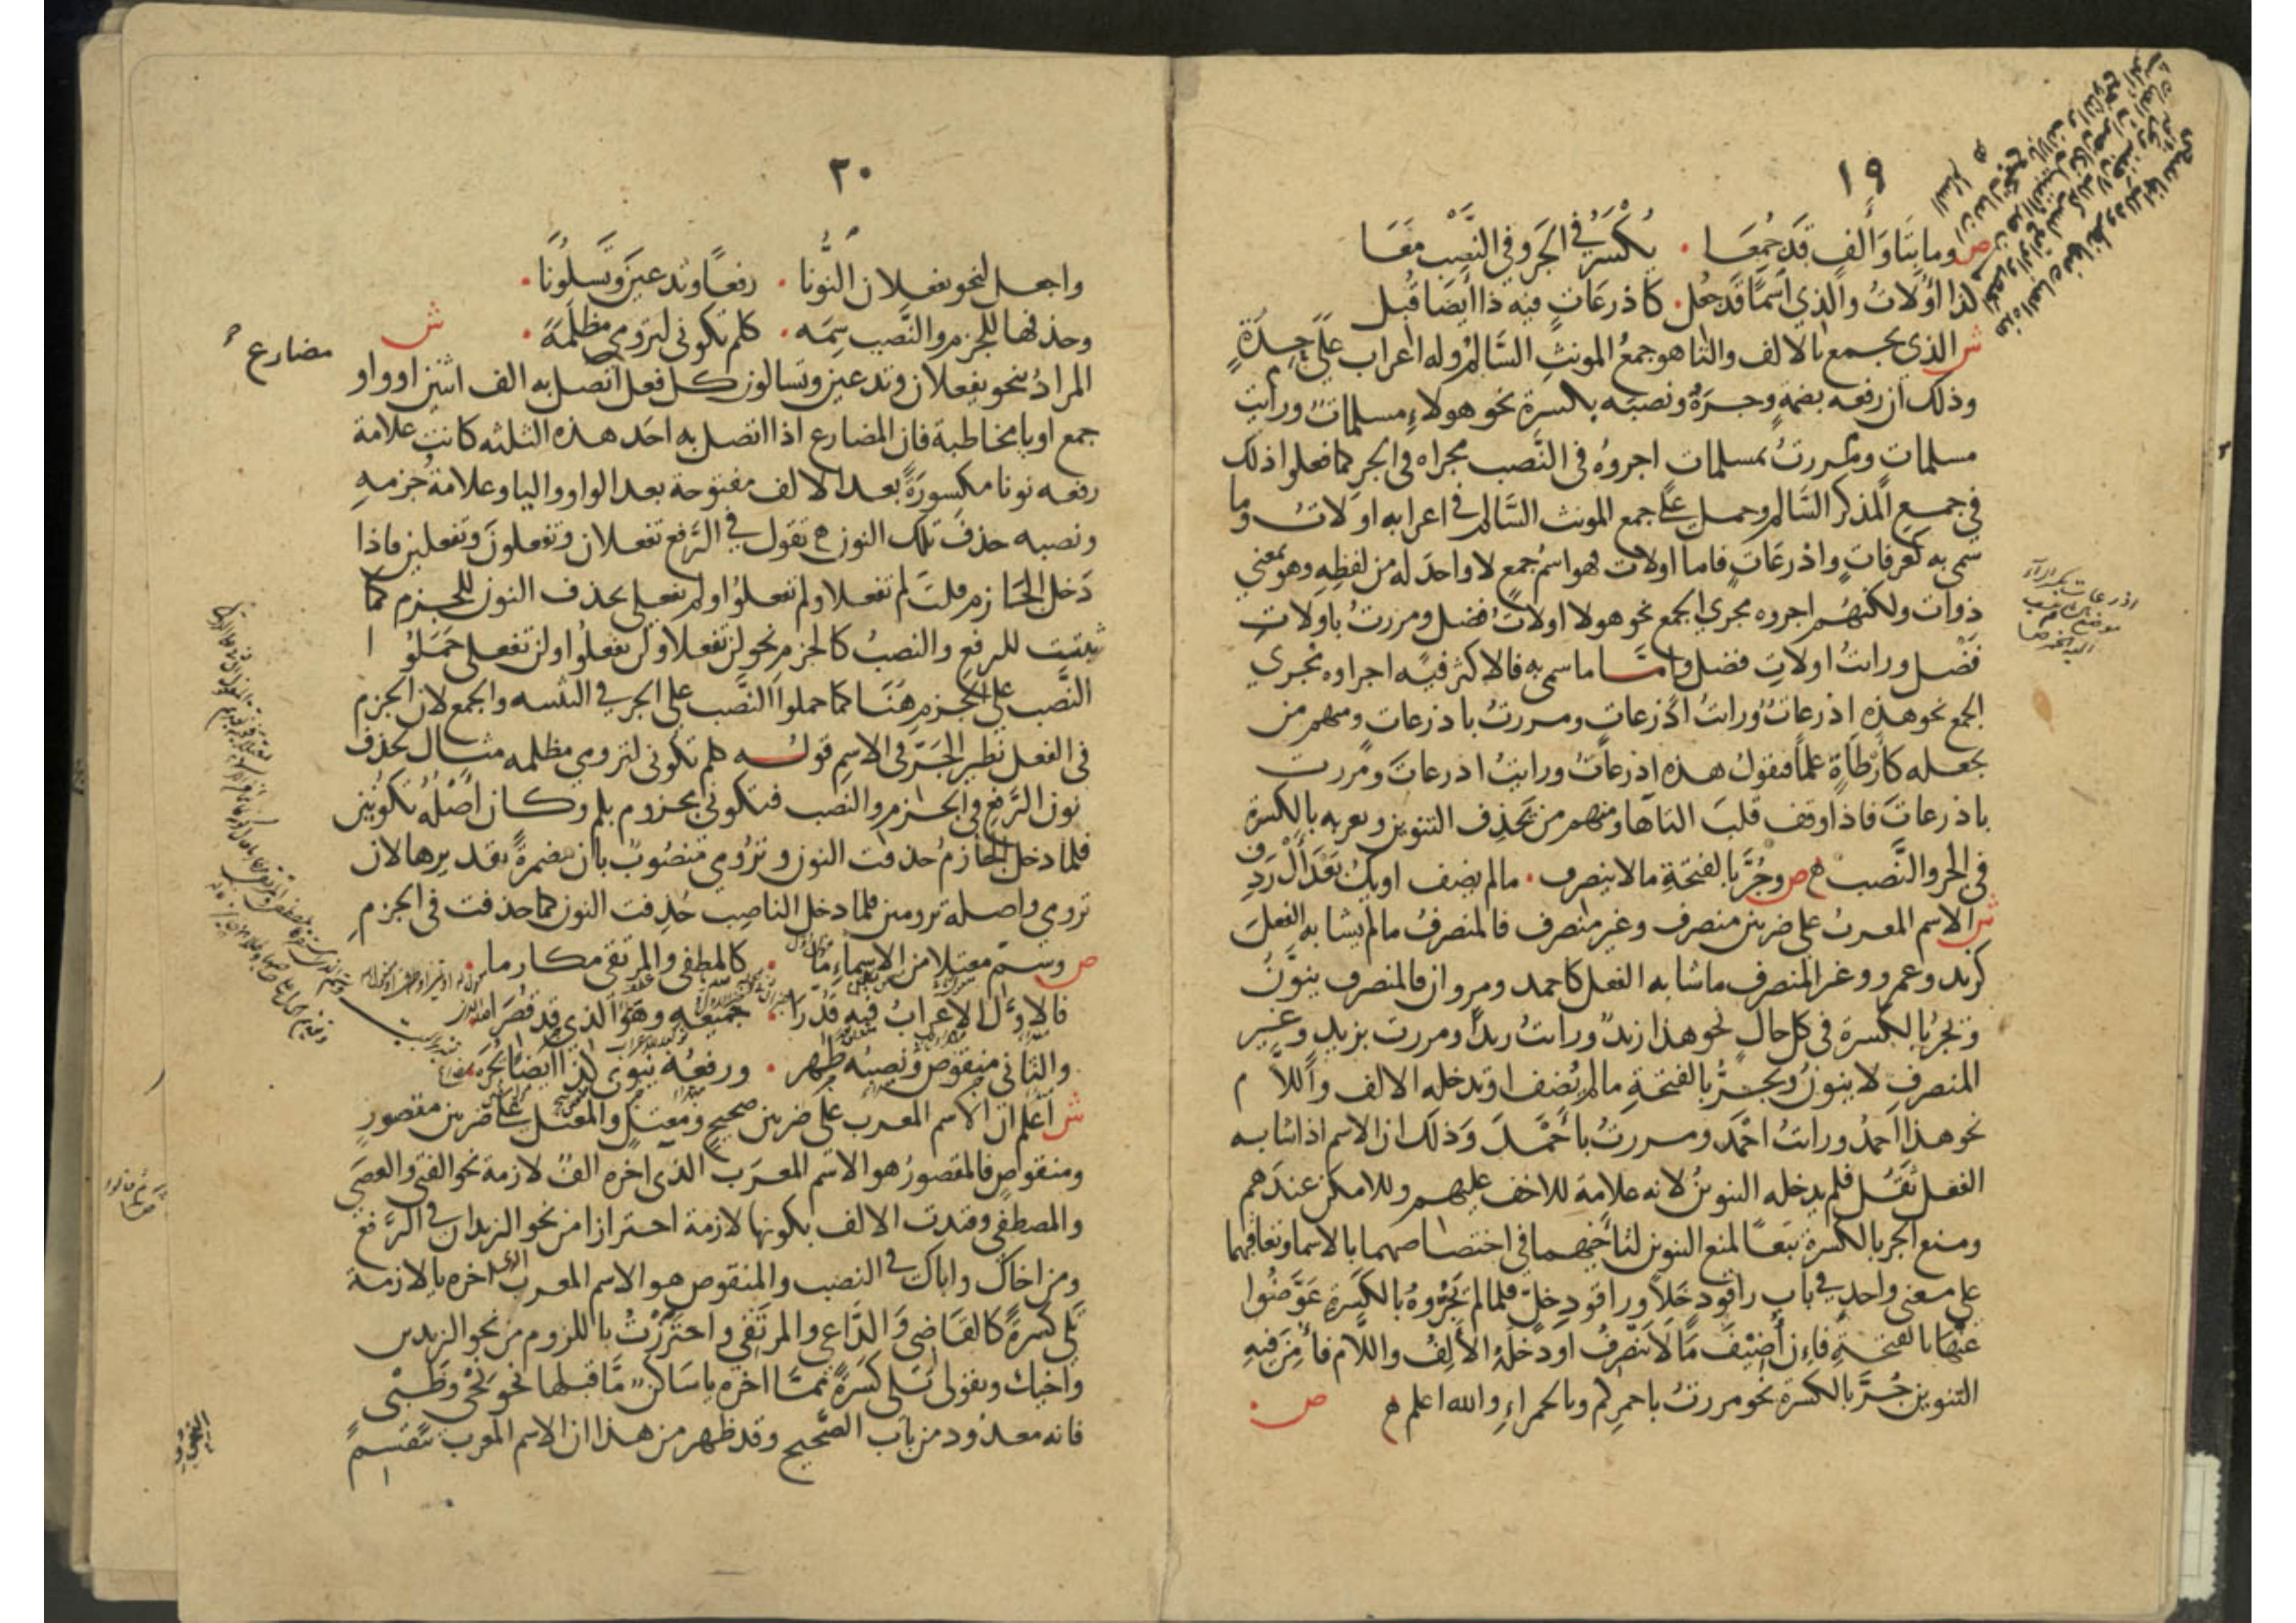 ١٩
ص وما بتا وألف قد جمعا . يكسر في الجر وفي النصب معا
كذا أولات والذي اسما قد جعل . كاذرعات فيه ذا أيضا قبل
ش الذي يجمع بالالف والتا هو جمع المونث السالم وله اعراب على حدة
وذلك ان رفعه بضمة وجره ونصبه بكسرة نحو هولاء مسلمات ورايت
مسلمات ومررت بمسلمات اجروه في النصب مجراه في الجر كما فعلوا ذلك
في جمع المذكر السالم وحمل على جمع المونث السالم في اعرابه اولات وما
سمي به كعرفات واذرعات فاما اولات فهو اسم جمع لا واحد له من لفظه وهو بمعني
ذوات ولكنهم اجروه مجري الجمع نحو هولا اولات فضل ومررت باولات
فضل ورايت اولات فضل واما ما سمي به فالاكثر فيه اجراوه مجري
الجمع نحو هذه اذرعات ورايت اذرعات ومررت باذرعات ومنهم من
يجعله كارطاة علما فيقول هذه اذرعات ورايت اذرعات ومررت
باذرعات فاذا وقف قلب التا ها ومنهم من يحذف التنوين ويعربه بالكسرة
في الجر والنصب ص وجر بالفتحة ما لا ينصرف . ما لم يضف او يك بعد أل ردف
ش الاسم المعرب على ضربين منصرف وغير منصرف فالمنصرف ما لم يشابه الفعل
كزيد وعمرو وغير المنصرف ما شابه الفعل كاحمد ومروان فالمنصرف ينون
ويجر بالكسرة في كل حال نحو هذا زيد ورايت زيدا ومررت بزيد وغير
المنصرف لا ينون ويجر بالفتحة ما لم يضف او تدخله الالف واللام
نحو هذا احمد ورايت احمد ومررت باحمد وذلك ان الاسم اذا شابه
الفعل ثقل فلم يدخله التنوين لانه علامة للاخف عليهم وللامكن عندهم
ومنع الجر بالكسرة تبعا لمنع التنوين لتاخيهما في اختصاصهما بالاسما وتعاقبهما
على معنى واحد في باب راقود خلا وراقود خل فلما لم يجروه بالكسرة عوضوا
عنها بالفتحة فإن أضيف ما لا ينصرف او دخله الألف واللام فأمن فيه
التنوين جر بالكسرة نحو مررت باحمركم وبالحمراء والله اعلم ص
٢٠
واجعل لنحو يفعلان النونا . رفعا وتدعين وتسلونا .
وحذفها للجزم والنصب سمه . كلم تكوني لترومي مظلمه . ش
المراد بنحو يفعلان وتدعين وتسالون كل فعل مضارع اتصل به الف اثنين او واو
جمع او يا مخاطبة فان المضارع اذا اتصل به احد هذه الثلثه كانت علامة
رفعه نونا مكسورة بعد الالف مفتوحة بعد الواو واليا وعلامة جزمه
ونصبه حذف تلك النون تقول في الرفع تفعلان وتفعلون وتفعلين فاذا
دخل الجازم قلت لم تفعلا ولم تفعلوا ولم تفعلي بحذف النون للجزم كما
ثبتت للرفع والنصب كالجزم نحو لن تفعلا ولن تفعلوا ولن تفعلي حملوا
النصب على الجزم هنا كما حملوا النصب على الجر في التثنيه والجمع لان الجزم
في الفعل نظير الجر في الاسم قوله كلم تكوني لترومي مظلمه مثال لحذف
نون الرفع في الجزم والنصب فتكوني مجزوم بلم وكان اصله تكونين
فلما دخل الجازم حذفت النون وترومي منصوب بان مضمرة تقديره لان
ترومي واصله ترومين فلما دخل الناصب حذفت النون كما حذفت في الجزم
ص وسم معتلا من الاسماء ما . كالمصطفى والمرتقي مكارما .
فالاول الاعراب فيه قدرا . جميعه وهو الذي قد قصرا
والثاني منقوص ونصبه ظهر . ورفعه ينوى كذا ايضا يجر
ش اعلم ان الاسم المعرب على ضربين صحيح ومعتل والمعتل على ضربين مقصور
ومنقوص فالمقصور هو الاسم المعرب الذي اخره الف لازمة نحو الفتى والعصى
والمصطفى وقيدت الالف بكونها لازمة احترازا من نحو الزيدان في الرفع
ومن اخاك واباك في النصب والمنقوص هو الاسم المعرب الذي اخره يا لازمة
تلي كسرة كالقاضي والداعي والمرتقي واحترزت باللزوم من نحو الزيدين
واخيك وبقولي تلي كسرة مما اخره يا ساكن ما قبلها نحو نحي وظبي
فانه معدود من باب الصحيح وقد ظهر من هذا ان الاسم المعرب ينقسم